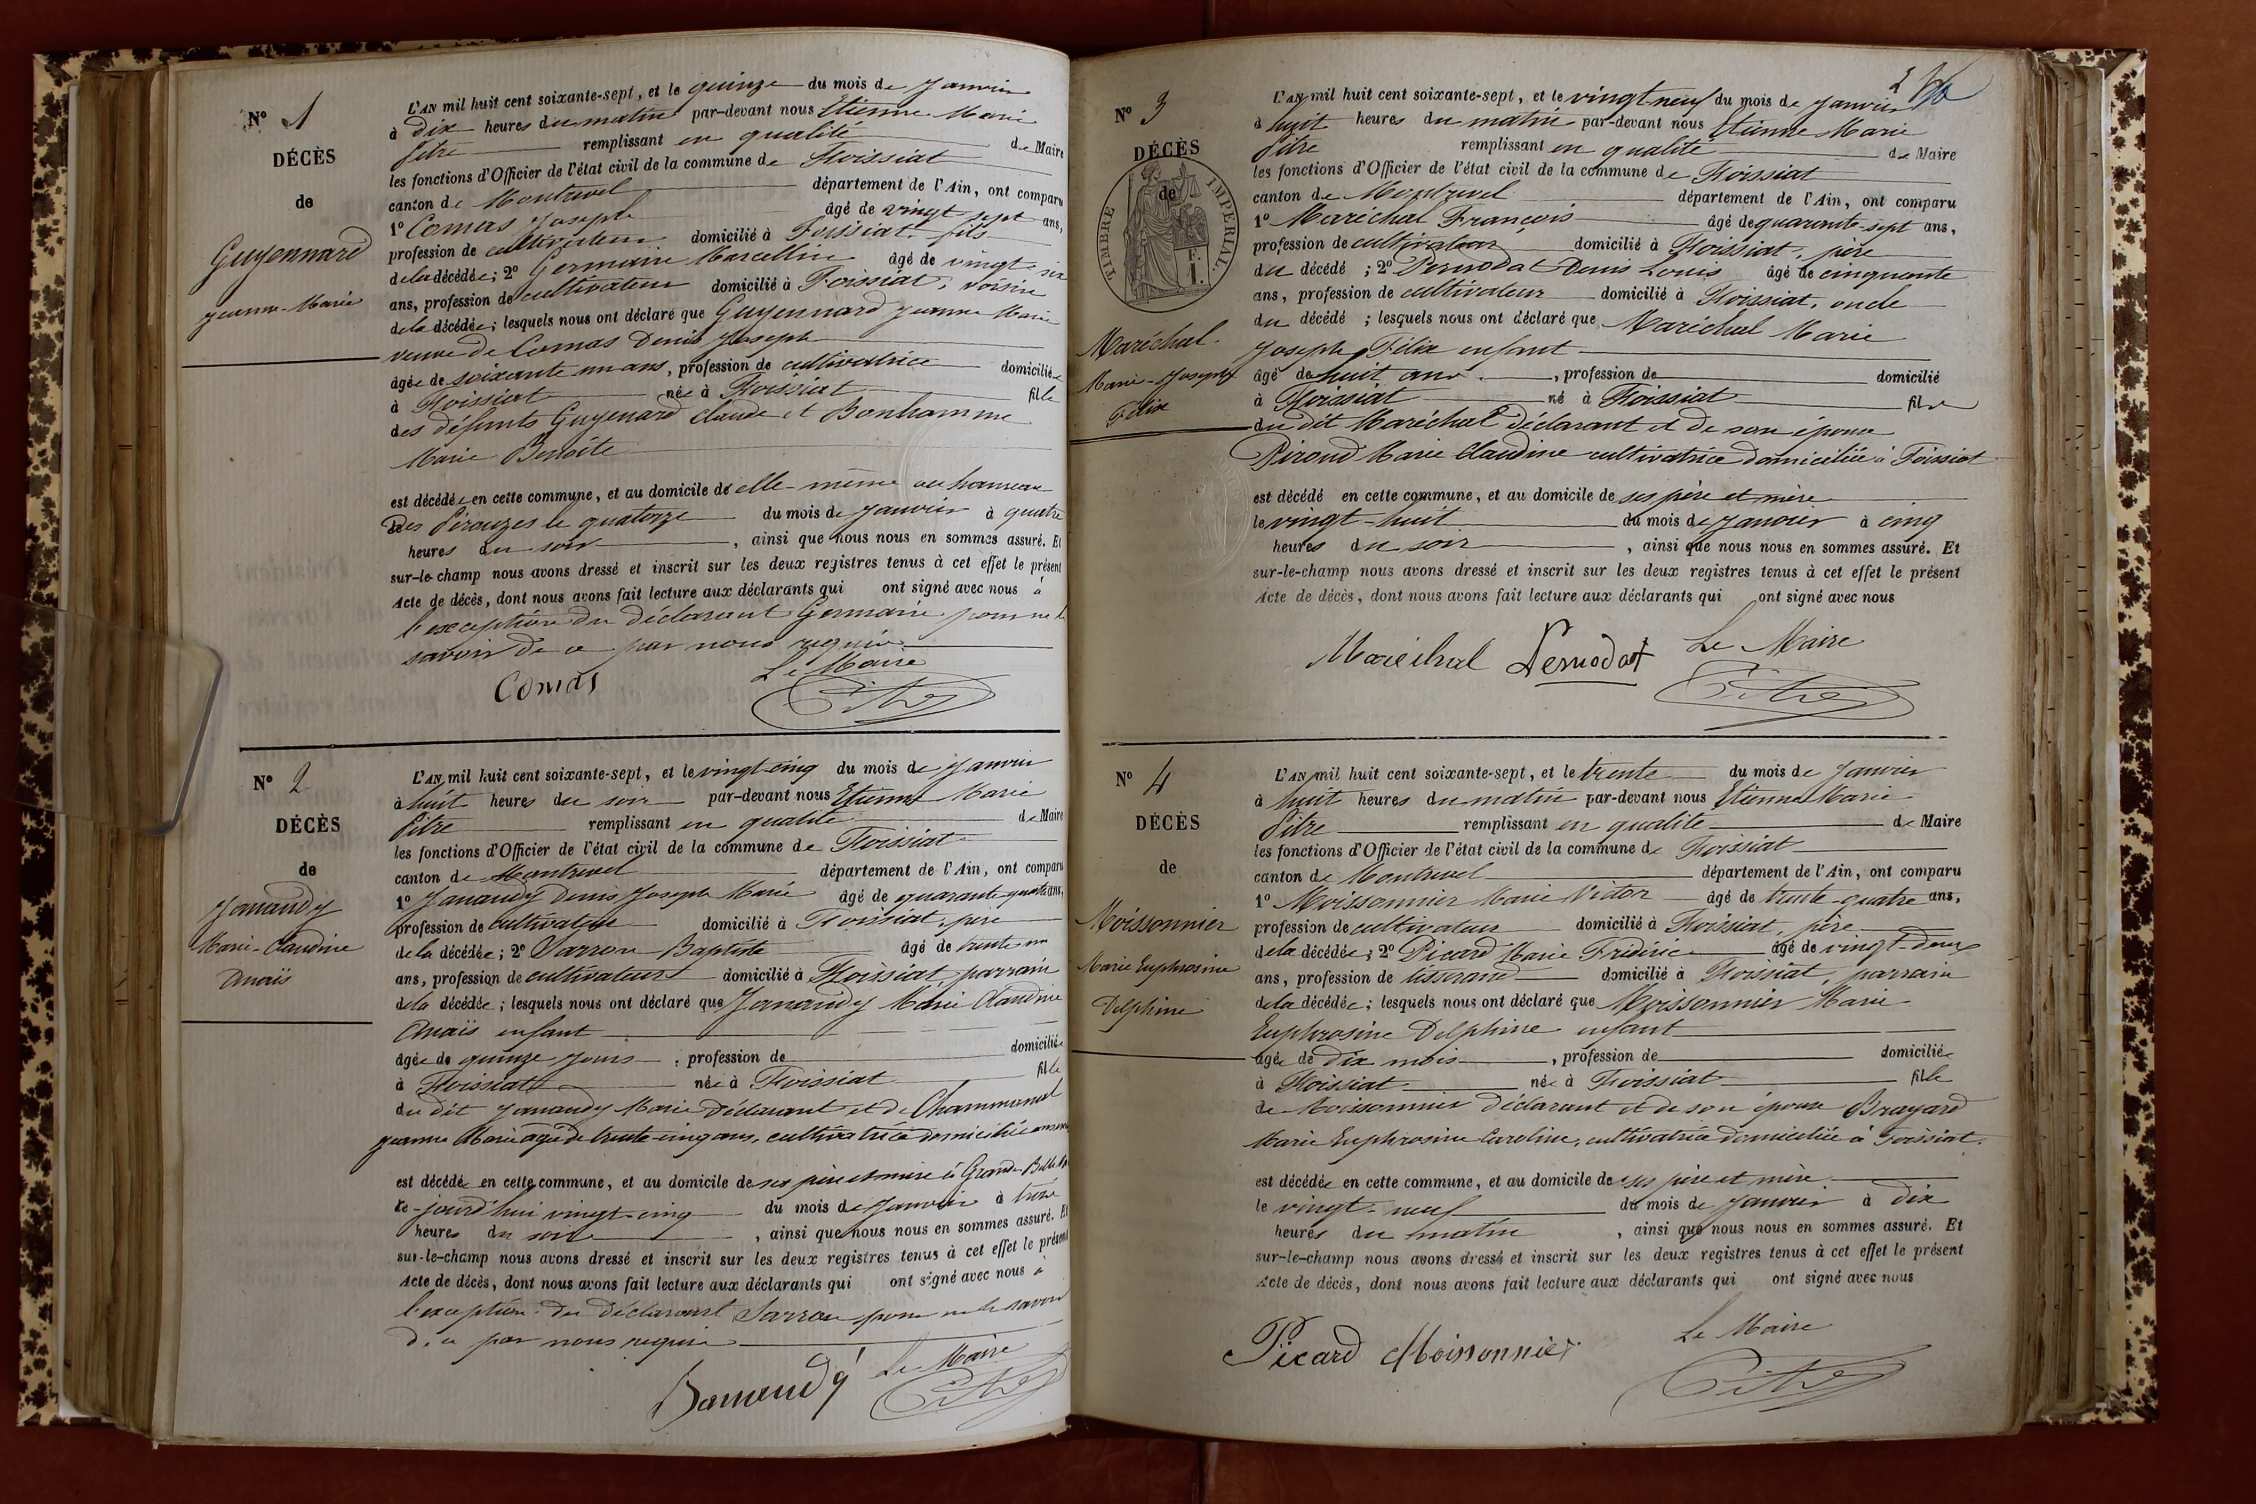 N° 1
DÉCÈS
de
Guyennard
Jeanne-Marie
L'AN mil huit cent soixante-sept, et le quinze du mois de Janvier
à dix heures du matin par-devant nous Etienne Marie
Pitre remplissant en qualité de Maire
les fonctions d'Officier de l'état civil de la commune de Foissiat
canton de Montrevel département de l'Ain, ont comparu
1° Comas Joseph âgé de vingt-sept ans,
profession de cultivateur domicilié à Foissiat, fils
de la décédée; 2° Germain Marcellin âgé de vingt-six
ans, profession de cultivateur domicilié à Foissiat, voisin
de la décédée; lesquels nous ont déclaré que Guyennard Jeanne Marie
veuve de Comas Denis Joseph
âgée de soixante un ans, profession de cultivatrice domiciliée
à Foissiat née à Foissiat fille
des défunts Guyenard Claude et Bonhomme
Marie Benoîte
est décédée en cette commune, et au domicile de elle-même au hameau
des Pérouzes le quatorze du mois de Janvier à quatre
heures du soir, ainsi que nous nous en sommes assuré. Et
sur-le-champ nous avons dressé et inscrit sur les deux registres tenus à cet effet le présent
Acte de décès, dont nous avons fait lecture aux déclarants qui ont signé avec nous à
l'exception du déclarant Germain pour ne le
savoir de ce par nous requis.
Le Maire
Comas Pitre
N° 2
DÉCÈS
de
Janaudy
Marie-Claudine
Anaïs
L'AN mil huit cent soixante-sept, et le vingt-cinq du mois de Janvier
à huit heures du soir par-devant nous Etienne Marie
Pitre remplissant en qualité de Maire
les fonctions d'Officier de l'état civil de la commune de Foissiat
canton de Montrevel département de l'Ain, ont comparu
1° Janaudy Denis Joseph Marie âgé de quarante-quatre ans,
profession de cultivateur domicilié à Foissiat, père
de la décédée; 2° Sarron Baptiste âgé de trente un
ans, profession de cultivateur domicilié à Foissiat, parrain
de la décédée; lesquels nous ont déclaré que Janaudy Marie Claudine
Anaïs enfant
âgée de quinze jours, profession de domiciliée
à Foissiat née à Foissiat fille
du dit Janaudy Marie déclarant et de Chammamel
Jeanne Marie âgée de trente-cinq ans, cultivatrice domiciliée
est décédée en cette commune, et au domicile de ses père et mère à Grand
ce-jourd'hui vingt-cinq du mois de Janvier à trois
heures du soir, ainsi que nous nous en sommes assuré. Et
sur-le-champ nous avons dressé et inscrit sur les deux registres tenus à cet effet le présent
Acte de décès, dont nous avons fait lecture aux déclarants qui ont signé avec nous à
l'exception du déclarant Sarron pour ne le savoir
de ce par nous requis
Le Maire
Janaudy Pitre
2
N° 3
DÉCÈS
de
TIMBRE IMPÉRIAL
F. 1.
Maréchal
Marie-Joseph
Félix
L'AN mil huit cent soixante-sept, et le vingt-neuf du mois de Janvier
à huit heures du matin par-devant nous Etienne Marie
Pitre remplissant en qualité de Maire
les fonctions d'Officier de l'état civil de la commune de Foissiat
canton de Montrevel département de l'Ain, ont comparu
1° Maréchal François âgé de quarante-sept ans,
profession de cultivateur domicilié à Foissiat, père
du décédé; 2° Pernodat Denis Louis âgé de cinquante
ans, profession de cultivateur domicilié à Foissiat, oncle
du décédé; lesquels nous ont déclaré que Maréchal Marie
Joseph Félix enfant
âgé de huit ans, profession de domicilié
à Foissiat né à Foissiat fils
du dit Maréchal déclarant et de son épouse
Piroud Marie Claudine cultivatrice domiciliée à Foissiat
est décédé en cette commune, et au domicile de ses père et mère
le vingt-huit du mois de Janvier à cinq
heures du soir, ainsi que nous nous en sommes assuré. Et
sur-le-champ nous avons dressé et inscrit sur les deux registres tenus à cet effet le présent
Acte de décès, dont nous avons fait lecture aux déclarants qui ont signé avec nous
Le Maire
Maréchal Pernodat Pitre
N° 4
DÉCÈS
de
Moissonnier
Marie Euphrosine
Delphine
L'AN mil huit cent soixante-sept, et le trente du mois de Janvier
à huit heures du matin par-devant nous Etienne Marie
Pitre remplissant en qualité de Maire
les fonctions d'Officier de l'état civil de la commune de Foissiat
canton de Montrevel département de l'Ain, ont comparu
1° Moissonnier Marie Victor âgé de trente-quatre ans,
profession de cultivateur domicilié à Foissiat, père
de la décédée; 2° Picard Marie Frédéric âgé de vingt-deux
ans, profession de tisserand domicilié à Foissiat, parrain
de la décédée; lesquels nous ont déclaré que Moissonnier Marie
Euphrosine Delphine enfant
âgée de dix mois, profession de domiciliée
à Foissiat née à Foissiat fille
de Moissonnier déclarant et de son épouse Brayard
Marie Euphrosine Caroline, cultivatrice domiciliée à Foissiat.
est décédée en cette commune, et au domicile de ses père et mère
le vingt-neuf du mois de Janvier à dix
heures du matin, ainsi que nous nous en sommes assuré. Et
sur-le-champ nous avons dressé et inscrit sur les deux registres tenus à cet effet le présent
Acte de décès, dont nous avons fait lecture aux déclarants qui ont signé avec nous
Le Maire
Picard Moissonnier Pitre